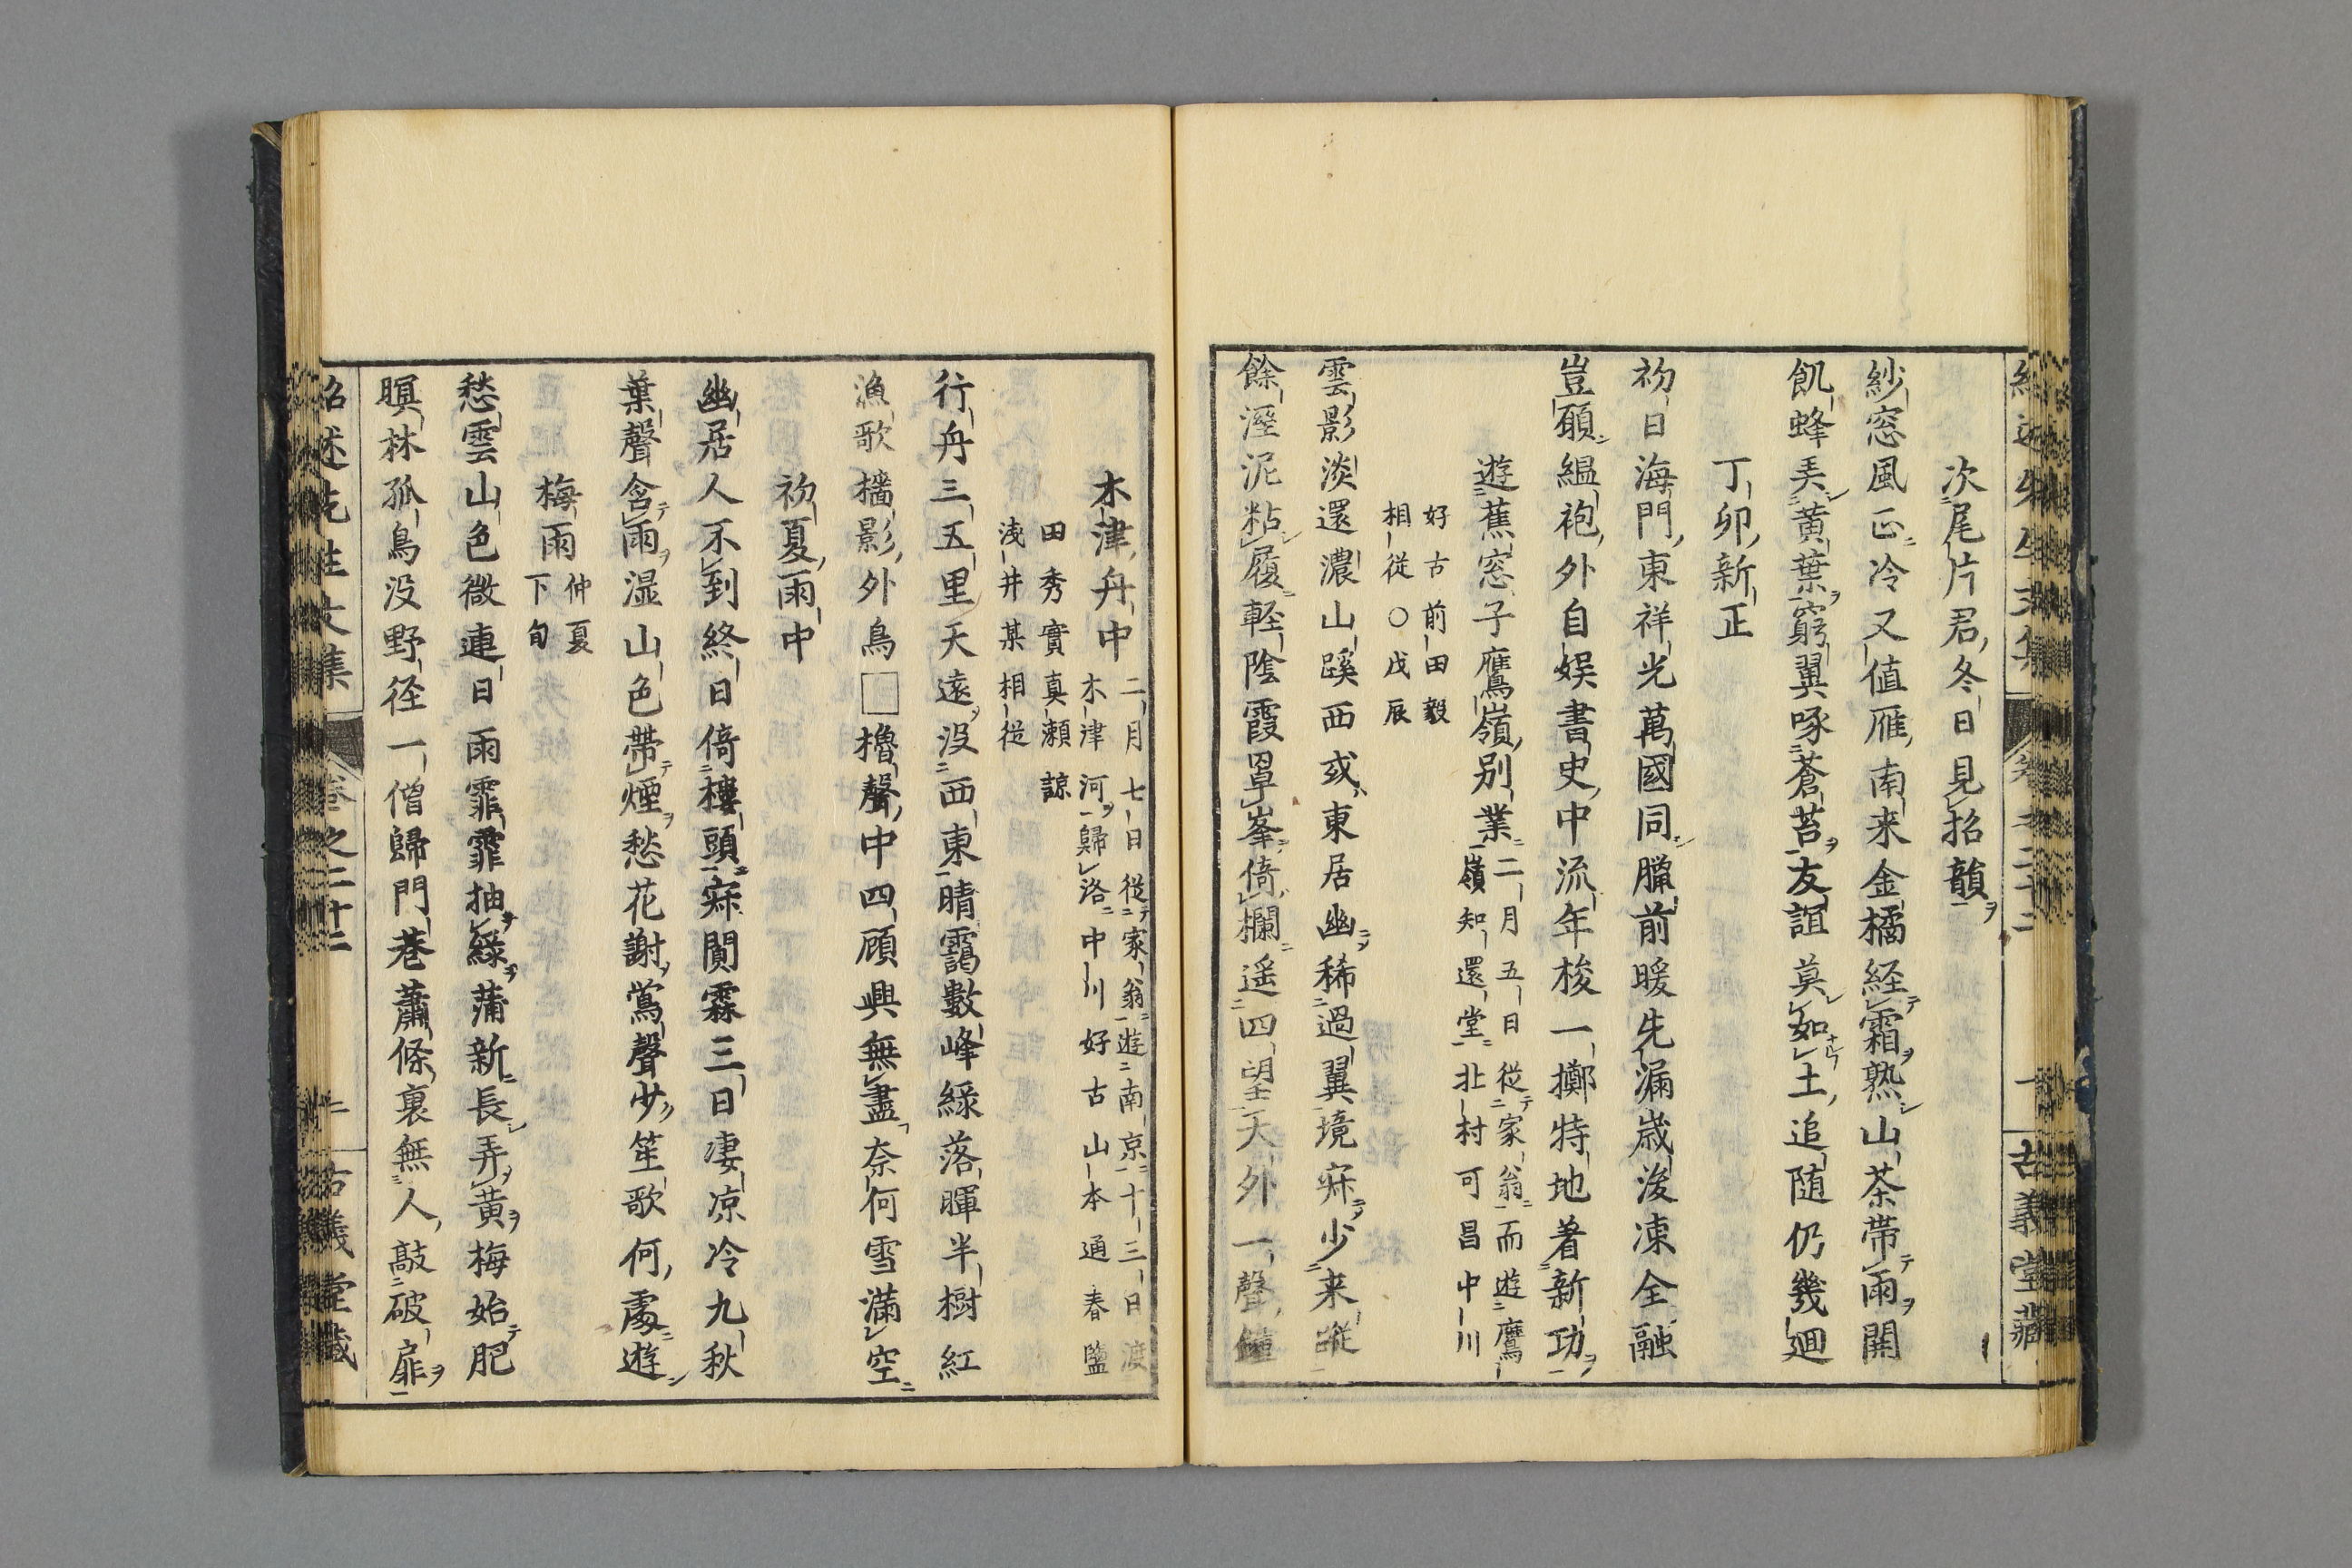 次尾片君冬日見招韻
紗窓風正冷又値雁南来金橘経霜熟山茶帯雨開
飢蜂弄黄葉窮翼啄蒼苔友誼莫如土追随仍幾廻
丁卯新正
初日海門東祥光萬國同臘前暖先漏歳後凍全融
豈願緼袍外自娯書史中流年梭一擲特地着新功
遊蕉窓子鷹嶺別業
二月五日従家翁而遊鷹
嶺知還堂北村可昌中川
好古前田毅
相従○戊辰
雲影淡還濃山蹊西或東居幽稀過翼境寂少来蹤
餘溼泥粘履軽陰霞罩峯倚欄遥四望天外一聲鐘
古義堂藏
木津舟中
二月七日従家翁遊南京十三日渡
木津河歸洛中川好古山本通春鹽
田秀實真瀬諒
浅井某相従
行舟三五里天遠没西東晴靄數峰緑落暉半樹紅
漁歌檣影外鳥□櫓聲中四顧興無盡奈何雪滿空
初夏雨中
幽居人不到終日倚樓頭寂閴霖三日凄凉冷九秋
葉聲含雨湿山色帶煙愁花謝鶯聲少笙歌何處遊
梅雨
仲夏
下旬
愁雲山色微連日雨霏霏抽緑蒲新長弄黄梅始肥
暝林孤鳥没野径一僧歸門巷蕭條裏無人敲破扉
紹述先生文集
卷之二十二
二
古義堂藏